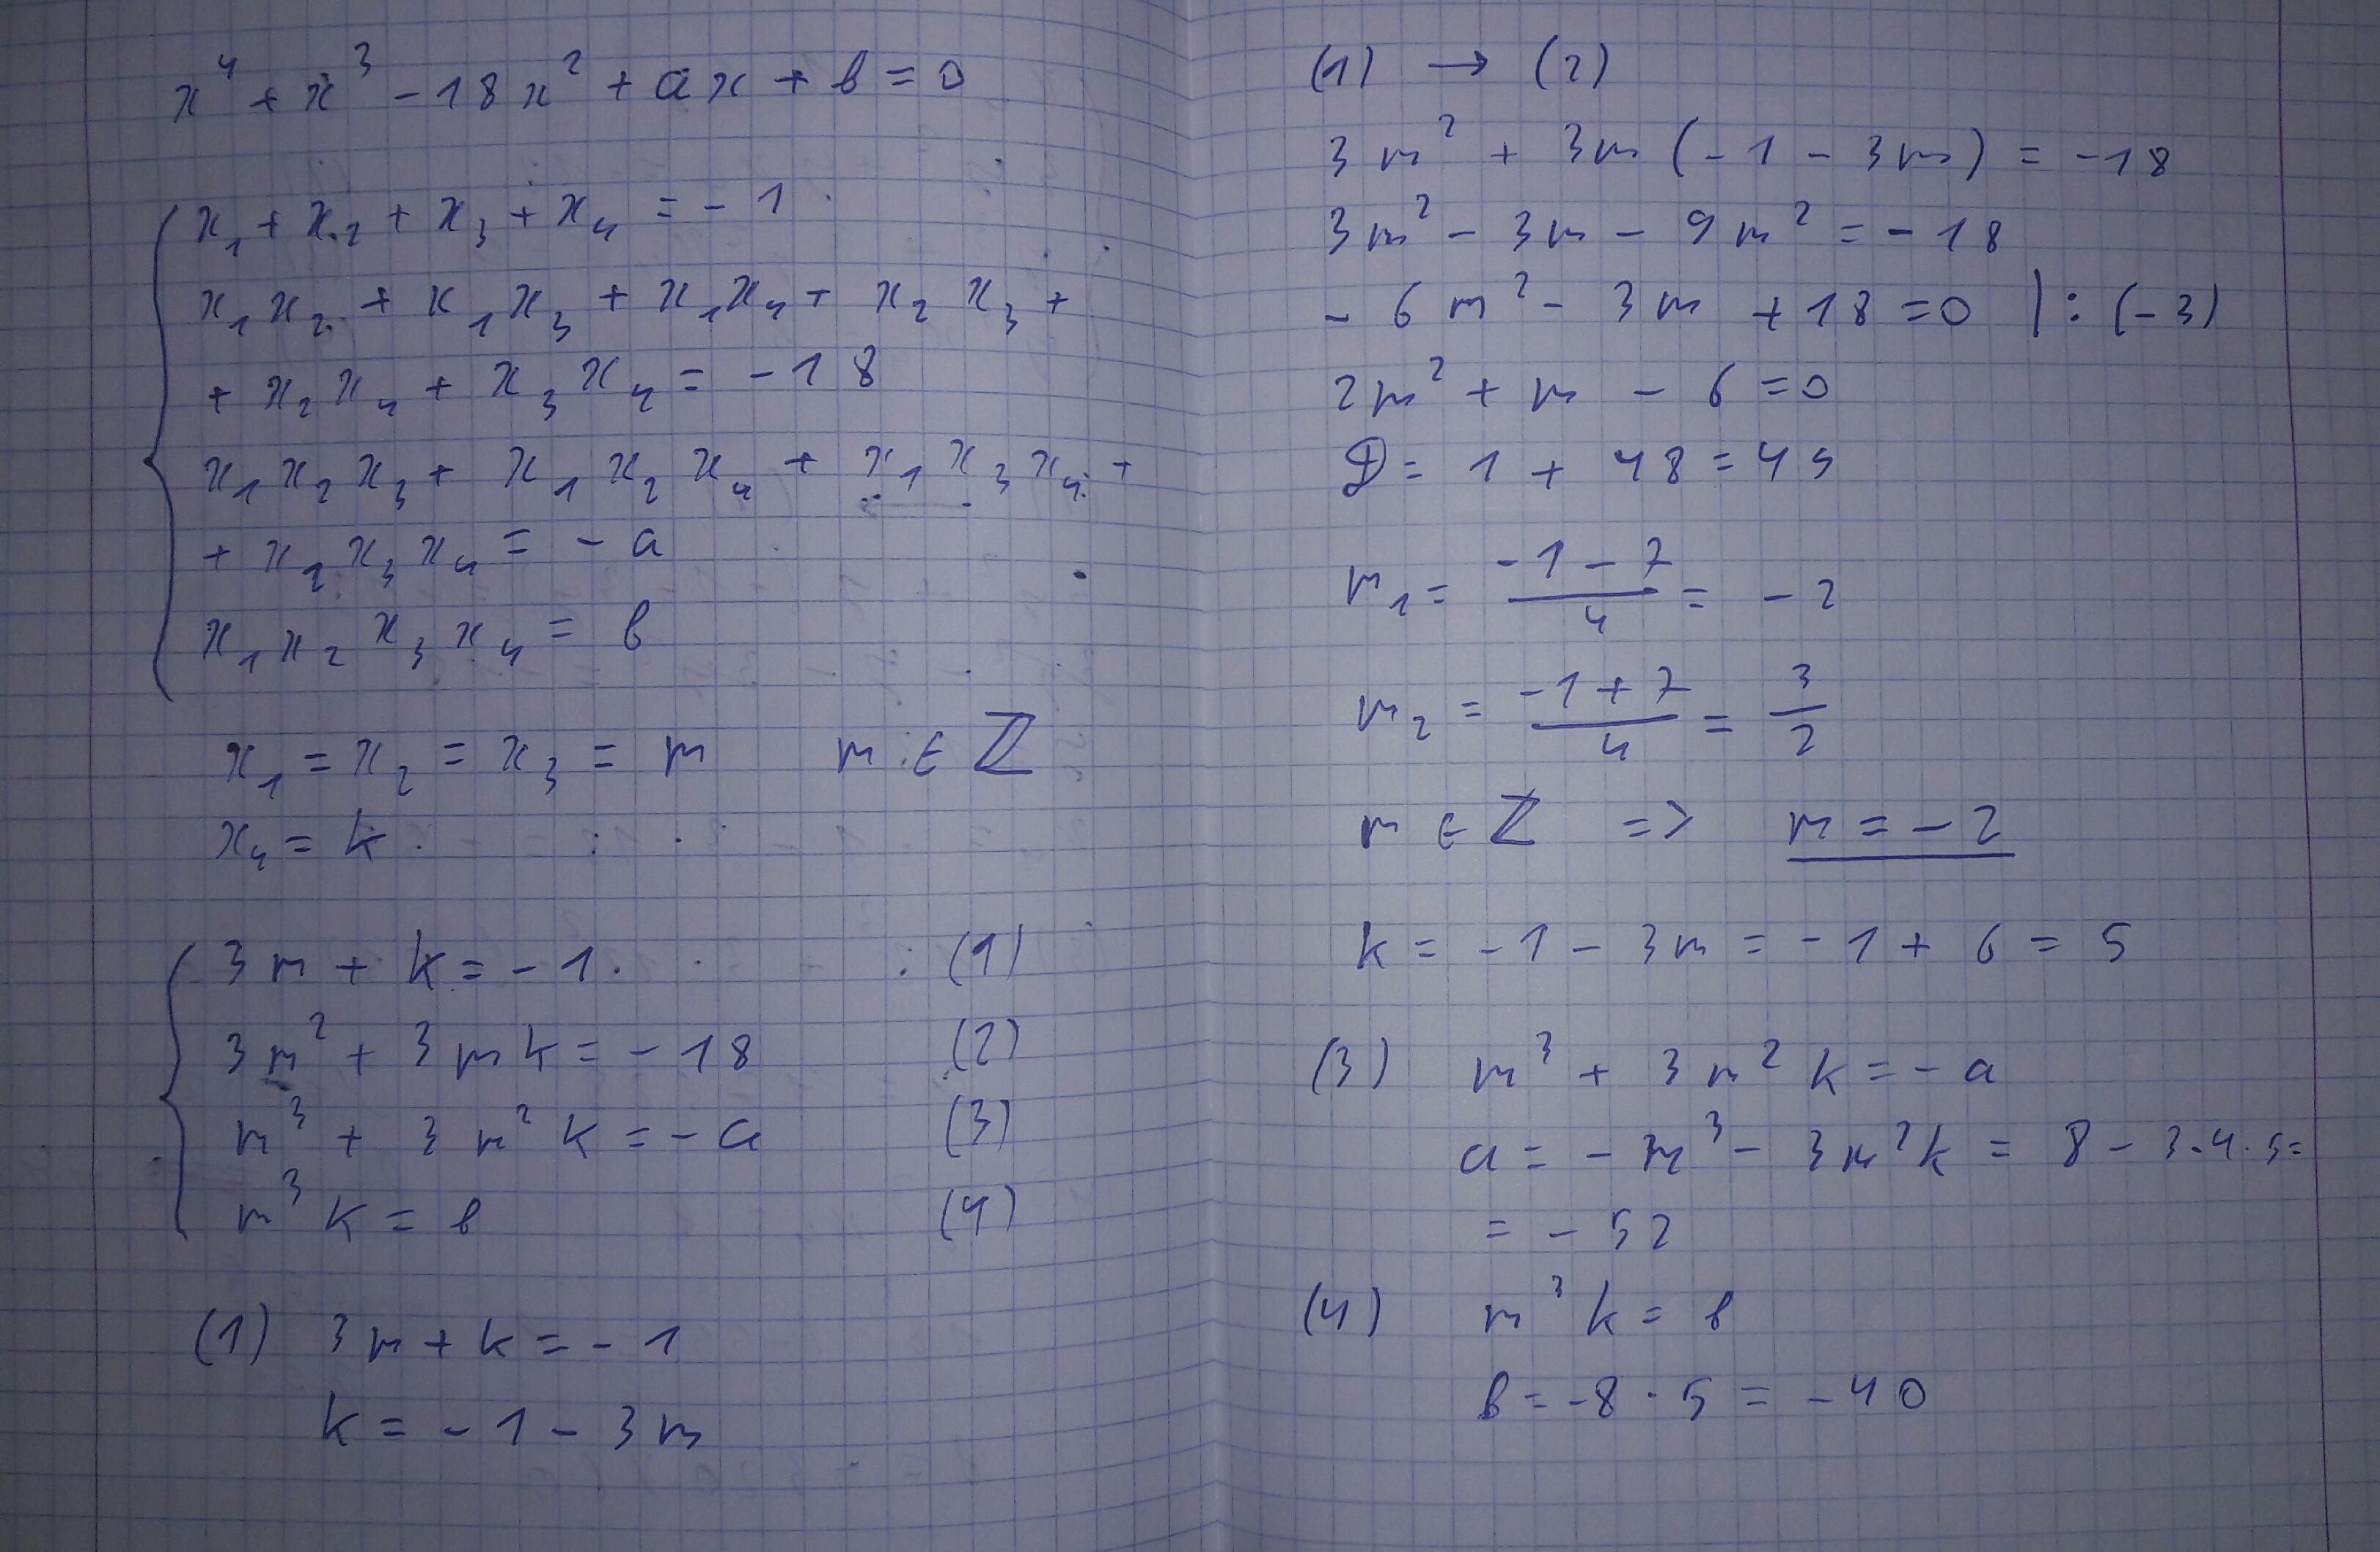 x⁴ + x³ - 18x² + ax + b = 0
x₁ + x₂ + x₃ + x₄ = - 1
x₁x₂ + x₁x₃ + x₁x₄ + x₂x₃ +
+ x₂x₄ + x₃x₄ = - 18
x₁x₂x₃ + x₁x₂x₄ + x₁x₃x₄ +
+ x₂x₃x₄ = - a
x₁x₂x₃x₄ = b
x₁ = x₂ = x₃ = m m ∈ ℤ
x₄ = k
3m + k = - 1 (1)
3m² + 3mk = - 18 (2)
m³ + 3m²k = - a (3)
m³k = b (4)
(1) 3m + k = - 1
k = - 1 - 3m
(1) → (2)
3m² + 3m(- 1 - 3m) = - 18
3m² - 3m - 9m² = - 18
- 6m² - 3m + 18 = 0 | : (-3)
2m² + m - 6 = 0
D = 1 + 48 = 49
m₁ = (-1 - 7)/4 = - 2
m₂ = (-1 + 7)/4 = 3/2
m ∈ ℤ => m = - 2
k = - 1 - 3m = - 1 + 6 = 5
(3) m³ + 3m²k = - a
a = - m³ - 3m²k = 8 - 3·4·5 =
= - 52
(4) m³k = b
b = -8 · 5 = - 40